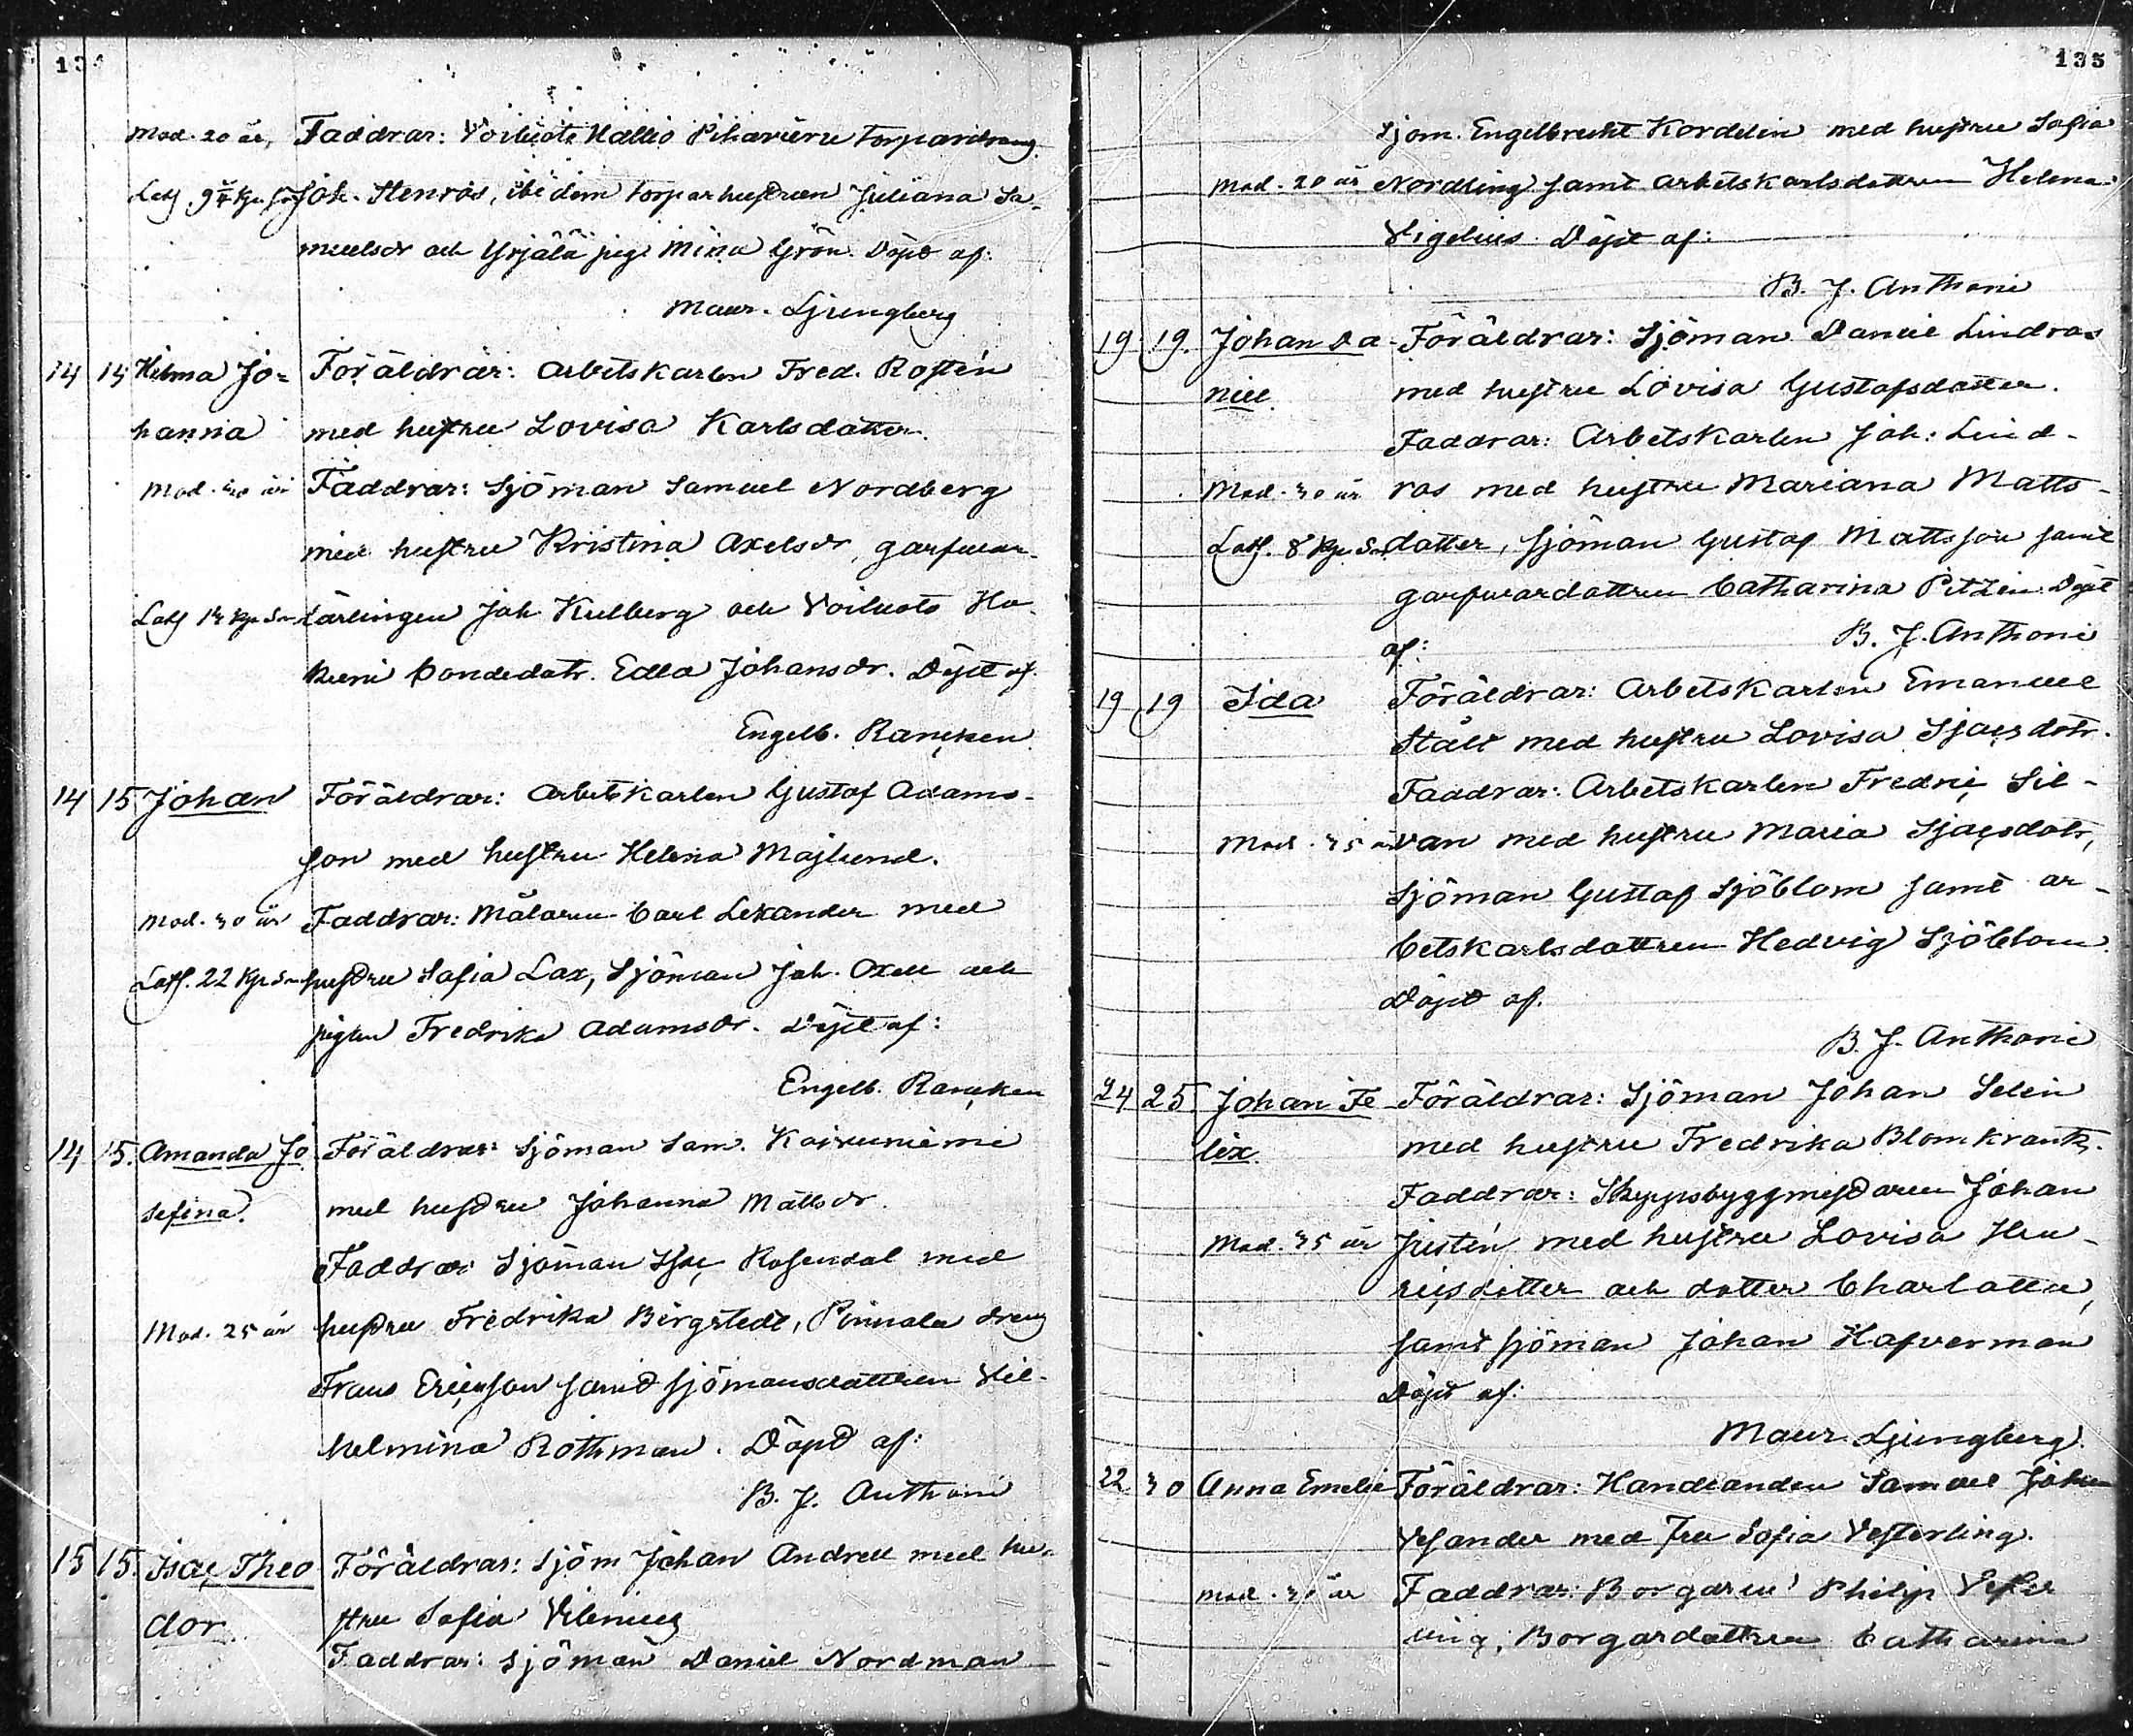 13
Mod. 20 år, Faddrar: Voiluoto Kallio Pihavieru torpardräng
Joh. Stenros, ibidem torparhustrun Juliana Sa-
muelsdr och Yrjälä pig. Mina Grön. Döpt af:
Maur. Ljungberg
14 14 Hilma Jo- Föräldrar: Arbetskarlen Fred. Rostén
hanna med hustru Lovisa Karlsdotter.
Mod. år Faddrar: Sjöman Samuel Nordberg
med hustru Kristina Axelsdr, garfvar-
lärlingen Joh Kullberg och Voiluoto Ha
bondedotr. Edla Johansdr. Döpt af.
Engelb. Rancken
14 15 Johan Föräldrar: Arbetskarlen Gustaf Adams-
son med hustru Helena Majlund.
Mod. 30 år Faddrar: Målaren Carl Lekander med
hustru Sofia Lax, Sjöman Joh. Oxell och
pigan Fredrika Adamsdr. Döpt af:
Engelb. Rancken
14 15. Amanda Jo Föräldrar: Sjöman Sam. Koivuniemi
sefina. med hustru Johanna Mattsdr.
Faddrar: Sjöman Isac Rosendal med
Mod. 25 år hustru Fredrika Bergstedt, Pinnala dreng
Frans Ericsson samt sjömansdottren Vil-
helmina Rothman. Döpt af:
B. J. Anthoni
15 15. Isac Theo Föräldrar: Sjöm Johan Andrell med hu-
dor. stru Sofia Vilenius
Faddrar: Sjöman Daniel Nordman
135
Sjöm. Engelbrecht Kordelin med hustru Sofia
Mod. 20 år Nordling samt arbetskarlsdottren Helena
Vigelius. Döpt af:
B. J. Anthoni
19 19. Johan Da- Föräldrar: Sjöman Daniel Lindros
niel med hustru Lovisa Gustafsdotter.
Faddrar: Arbetskarlen Joh: Lind-
Mod. 30 år ros med hustru Mariana Matts-
dotter, sjöman Gustaf Mattsson samt
garfvardottren Catharina Pitzén. Döpt
af: B. J. Anthoni
19 19 Ida Föräldrar: Arbetskarlen Emanuel
Ståhl med hustru Lovisa Isacsdotr.
Faddrar: Arbetskarlen Fredric Sil-
Mod. 35 år van med hustru Maria Isacsdotr,
Sjöman Gustaf Sjöblom samt ar-
betskarlsdottren Hedvig Sjöblom.
Döpt af.
B. J. Anthoni
24 25. Johan Fe- Föräldrar: Sjöman Johan Selin
lix. med hustru Fredrika Blomkrantz.
Faddrar: Skeppsbyggmästaren Johan
Mod. 35 år Justén med hustru Lovisa Hen-
ricsdotter och dotter Charlotta,
samt sjöman Johan Hafverman
Döpt af:
Maur. Ljungberg.
22 30 Anna Emelie Föräldrar: Handlanden Samuel Johan
Vesander med fru Sofia Vesterling.
Mod. 30 år Faddrar: Borgaren Philip Vester
ling, Borgardottren Catharina